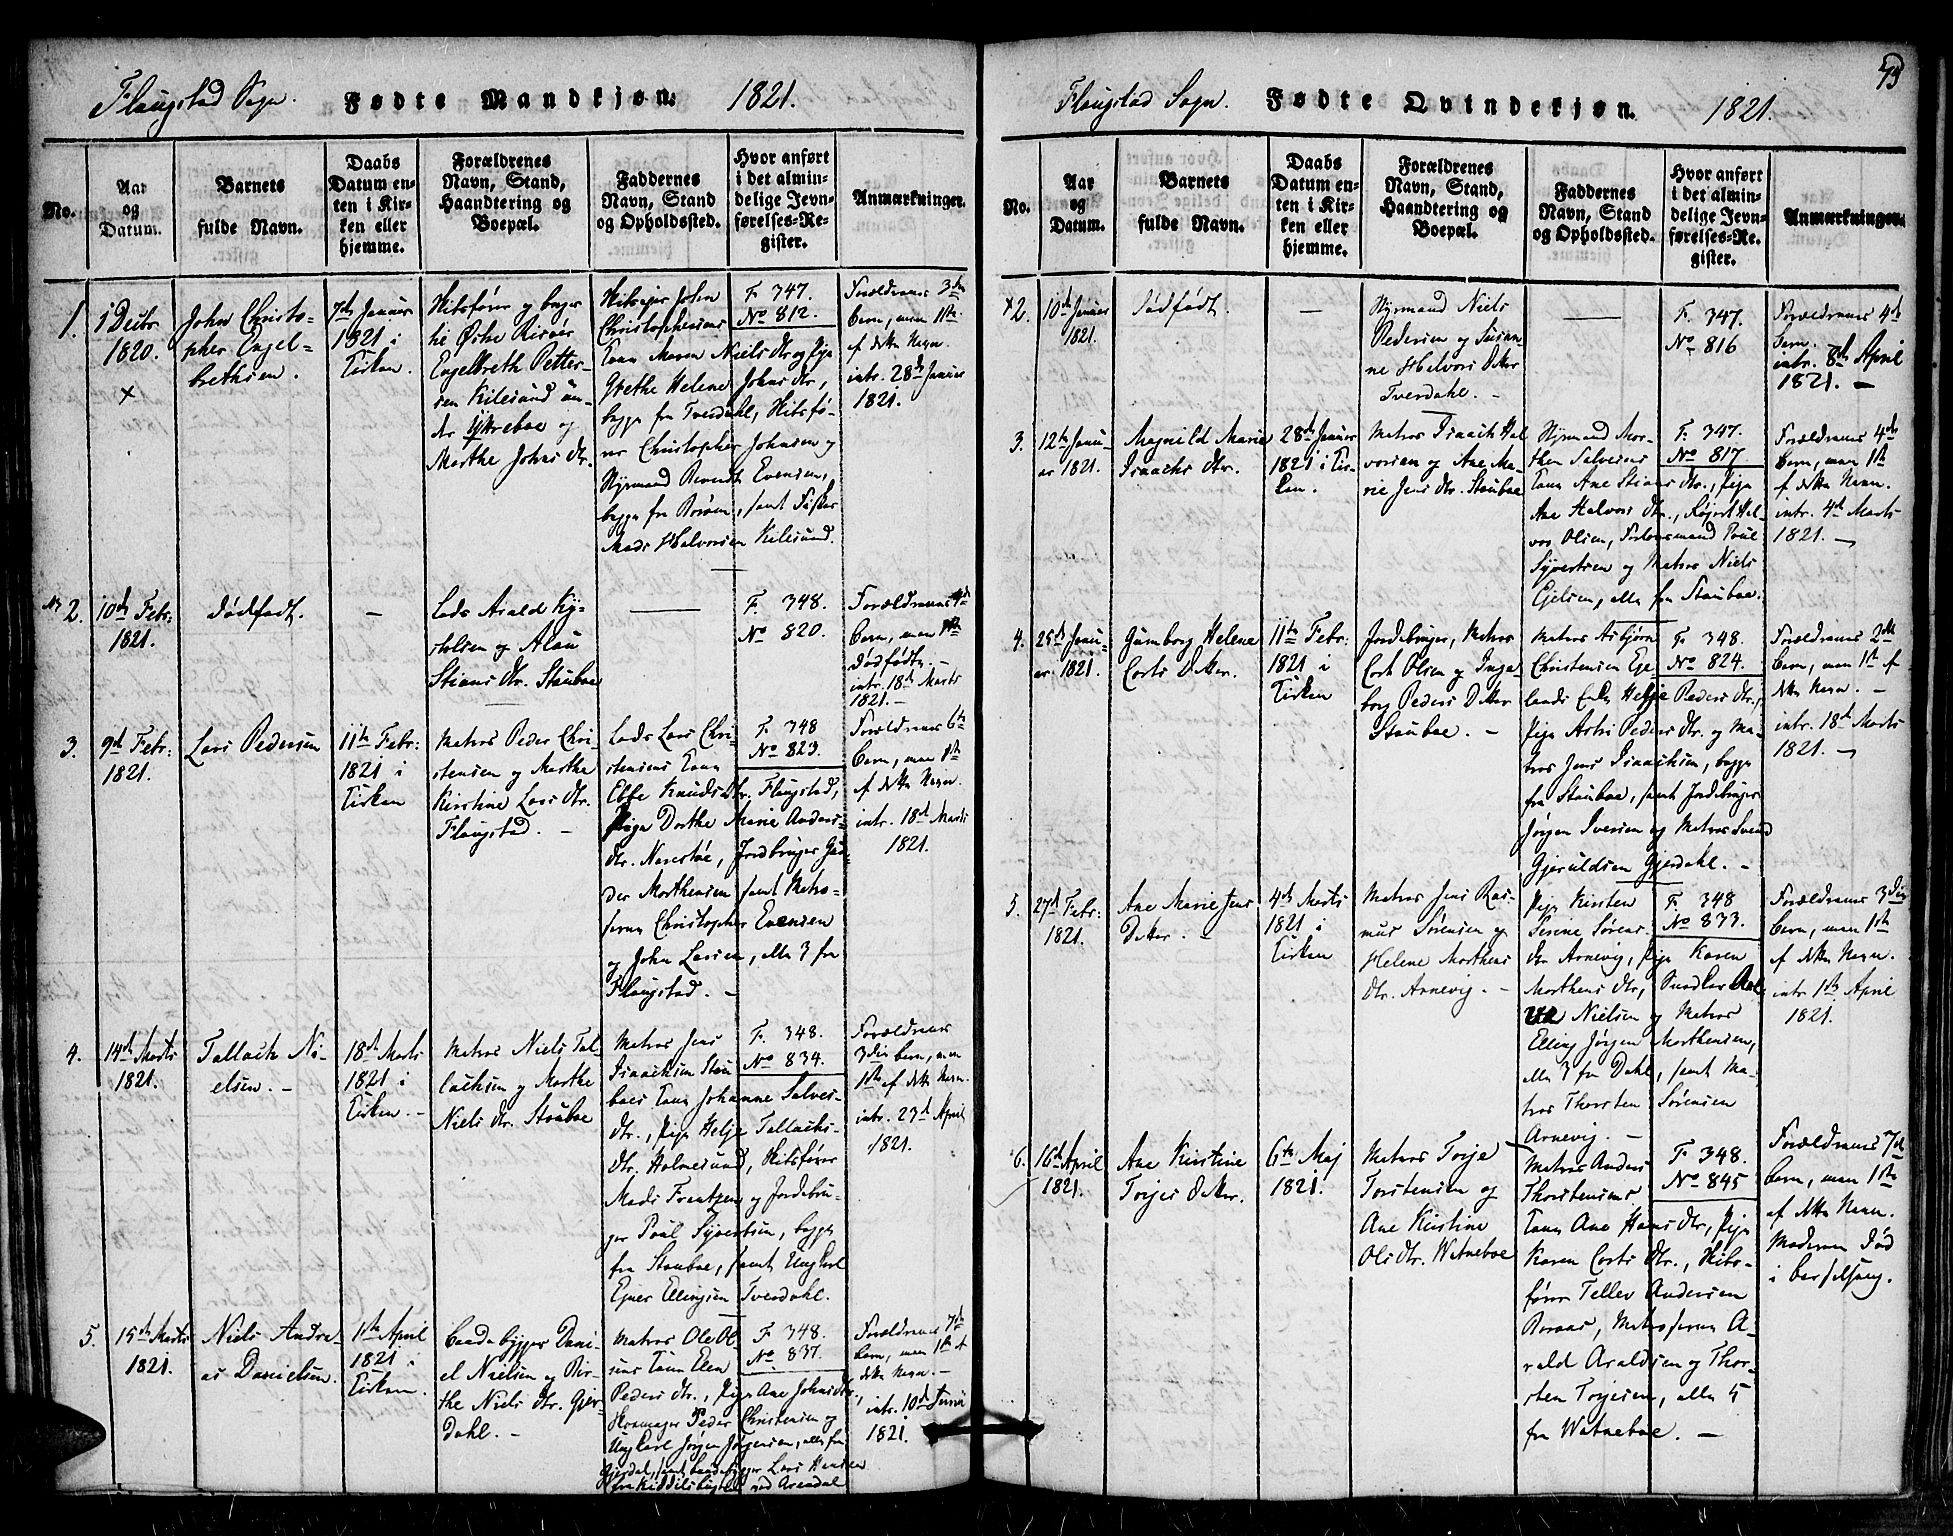 Flaugstad Sogn. Fødte Mandkjøn. 1821.
No.
Aar
og
Datum.
Barnets
fulde Navn.
Daabs
Datum en-
ten i Kir-
ken eller
hjemme.
Forældrenes
Navn, Stand,
Haandtering og
Boepæl.
Faddernes
Navn, Stand
og Opholdssted.
Hvor anført
i det almin-
delige Jevn-
førelses-Re-
gister.
Anmærkninger.
1.
1820.
John Christo-
pher Engel-
brethsen.
7de Januar
1821 i
Kirken.
Engelbreth Petter-
sen Kilesund un-
der Ytreboe og
Marthe Johns Dtr.
Christophersens
Kone Maren Nielsdtr og Pige
Grethe Helene Johns Dtr,
begge fra Tverdahl,
Christopher Johnsen og
Styrmand Berendt Evensen,
begge fra Boröen, samt Fisker
Mads Halvorsen Kilesund.
F. 347.
No 812.
Forældrenes 3die
Barn, men 1ste
af dette Navn.
intr. 28de Januar
1821.
2.
10de Febr:
1821.
Dödfödt.
—
Lods Arald Ky-
Stians Dtr. Stauboe
F. 348.
No 820.
Barn, men 1ste
Dödfödte. –
intr. 18de Marts
1821. –
3.
9de Febr:
1821.
Lars Pedersen
11te Febr:
1821 i
Kirken
Matros Peder Chri-
stensen og Marthe
Kirstine Lars Dtr.
Flaugstad. –
Lods Lars Chri-
stensens Kone
Ebbe Knuds Dtr. Flaugstad,
Pige Dorthe Marie Anders-
Dtr. Narestöe, Jordbruger Gun-
der Morthensen samt Matro-
serne Christopher Evensen
og John Larsen, alle 3 fra
Flaugstad. –
F. 348
No 823.
Forældrenes 6te
Barn, men 1ste
af dette Navn.
intr. 18de Marts
1821.
4.
14de Marts
1821.
Tallach Ni-
elsen. –
18de Marts
1821 i
Kirken. –
Matros Niels Tal-
lachsen og Marthe
Niels Dtr. Stauboe
Matros Jens
Isaachsen Stau-
boes Kone Johanne Salves-
Dtr., Pige Helje Tallachs-
Dtr. Holmesund, Skibsförer
Mads Frantzen og Jordbru-
ger Poul Syvertsen, begge
fra Stauboe, samt Ungkarl
Ejner Ellingsen Tverdahl.
F. 348.
No 834.
Forældrenes
3die Barn, men
1ste af dette Navn.
intr. 23de April
1821.
5.
15de Marts
1821.
Niels Andre-
as Danielsen.
1ste April
1821 i
Kirken.
Baadebygger Dani-
el Nielsen og Bir-
the Niels Dtr. Gjer-
dahl. –
Matros Ole Ol-
sens Kone Elen
Peders Dtr., Pige Ane Johns Dtr.,
Peder Christensen og
Ungkarl Jörgen Jörgensen, alle fra
Gjerdal, samt Baadebygger Lars Hansen
ved Arendal
F. 348.
No 837.
Forældrenes 7de
Barn, men 1ste af
dette Navn. –
intr. 10de Junii
1821.
Flaugstad Sogn. Fødte Qvindekjøn. 1821.
No.
Aar
og
Datum.
Barnets
fulde Navn.
Daabs
Datum en-
ten i Kir-
ken eller
hjemme.
Forældrenes
Navn, Stand,
Haandtering og
Boepæl.
Faddernes
Navn, Stand
og Opholdssted.
Hvor anført
i det almin-
delige Jevn-
førelses-Re-
gister.
Anmærkninger.
2.
10de Januar
1821.
Dödfödt.
—
Styrmand Niels
Pedersen og Susan-
ne Halvors Datter
Tverdahl. –
—
F. 347.
No 816
Forældrenes 4de
Barn.
intr. 8de April
1821. –
3.
12te Janu-
ar 1821.
Magnild Marie
Isaachs Dtr.
28de Januar
1821 i Kir-
ken.
Matros Isaach Hal-
vorsen og Ane Ma-
rie Jens Dtr. Stauboe
Styrmand Mor-
then Salvesens
Kone Ane Stians Dtr., Pige
Ane Halvors Dtr.,
vor Olsen, Poul
Syvertsen og Matros Niels
Ejelsen, alle fra Stauboe.
F. 347.
No 817
Forældrenes 4de
Barn, men 1ste
af dette Navn.
intr. 4de Marts
1821. –
4.
25de Janu-
ar 1821.
Gumborg Helene
Corts Datter.
11te Febr:
1821 i
Kirken
Jordbruger, Matros
Cort Olsen og Inge-
borg Peders Datter
Stauboe. –
Matros Asbjörn
Christensen Eje-
lands Enke Helje Peders Dtr.,
Pige Astri Peders Dtr. og Ma-
tros Jens Isaachsen, begge
fra Stauboe, samt Jordbruger
Jörgen Iversen og Matros Svend
Gjeruldsen Gjerdahl. –
F. 348.
No 824.
Forældrenes 2det
Barn, men 1ste af
dette Navn. –
intr. 18de Marts
1821. –
5.
27de Febr:
1821.
Ane Marie Jens
Datter. –
4de Marts
1821 i
Kirken
Matros Jens Ras-
mus Sörensen og
Helene Morthens
Dtr. Arnevig. –
Pige Kirsten
Serine Sörens
Dtr Arnevig, Pige Karen
Morthens Dtr,
Nielsen og Matros
Elling Jörgen Morthensen,
alle 3 fra Dahl, samt Ma-
tros Thorsten Sörensen
Arnevig. –
F. 348
No 833.
Forældrenes 3die
Barn, men 1ste
af dette Navn.
intr. 1ste April
1821.
6.
16de April
1821.
Ane Kirstine
Torjes Datter.
6te Maj
1821.
Matros Torje
Torstensen og
Ane Kirstine
Ols Dtr. Watneboe
Matros Anders
Thorstensens
Kone Ane Hans Dtr, Pige
Karen Corts Dtr., Skibs-
förer Tellev Andersen
Boraas, Matroserne A-
rald Araldsen og Thor-
sten Torjesen, alle 5
fra Watneboe. –
F. 348.
No 845
Forældrenes 7de
Barn, men 1ste
af dette Navn.
Moderen Död
i Barselseng.